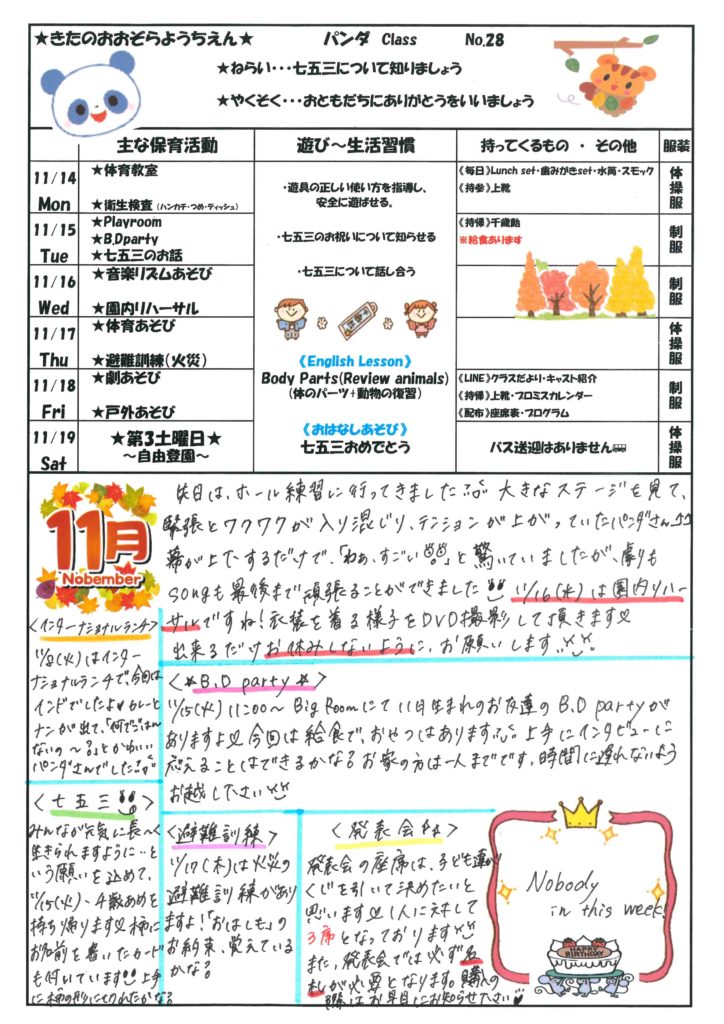 ★きたのおおぞらようちえん★　パンダ Class　No.28
★ねらい・・・七五三について知りましょう
★やくそく・・・おともだちにありがとうをいいましょう
主な保育活動　遊び～生活習慣　持ってくるもの ・ その他　服装
11/14 Mon
★体育教室
★衛生検査（ハンカチ・つめ・ティッシュ）
《毎日》Lunch set・歯みがきset・水筒・スモック
《持参》上靴
体操服
11/15 Tue
★Playroom
★B.Dparty
★七五三のお話
《持帰》千歳飴
※給食あります
制服
11/16 Wed
★音楽リズムあそび
★園内リハーサル
制服
11/17 Thu
★体育あそび
★避難訓練(火災)
体操服
11/18 Fri
★劇あそび
★戸外あそび
《LINE》クラスだより・キャスト紹介
《持帰》上靴・プロミスカレンダー
《配布》座席表・プログラム
制服
11/19 Sat
★第3土曜日★
～自由登園～
バス送迎はありません
体操服
・遊具の正しい使い方を指導し、
安全に遊ばせる。
・七五三のお祝いについて知らせる
・七五三について話し合う
《English Lesson》
Body Parts(Review animals)
(体のパーツ+動物の復習)
《おはなしあそび》
七五三おめでとう
11月
Nobember
先日は、ホール練習に行ってきました 大きなステージを見て、
緊張とワクワクが入り混じり、テンションが上がっていたパンダさん♪♪
幕が上下するだけで、「わぁ、すごい!!」と驚いていましたが、劇も
songも最後まで頑張ることができました 11/16(水)は園内リハー
サルですね!衣装を着る様子をDVD撮影して頂きます♡
出来るだけお休みしないように、お願いします
<インターナショナルランチ>
11/8(火)はインター
ナショナルランチで、今回は
インドでした♡カレーと
ナンが出て、「何でごはん
ないの～?」とかわいい
パンダさんでした
<☆B.D party☆>
11/15(火) 11:00～ Big Roomにて11月生まれのお友達のB.D partyが
ありますよ♡今回は給食で、おやつはあります 上手にインタビューに
応えることはできるかな?お家の方は一人までです。時間に遅れないよう
お越し下さい
<七五三>
みんなが元気に長～く
生きられますように…と
いう願いを込めて、
11/15(火)、千歳あめを
持ち帰ります♡柿に
お名前を書いたカード
も付いています!!上手
に柿の形に切れたかな?
<避難訓練>
11/17(木)は火災の
避難訓練があり
ますよ!「おはしも」の
お約束、覚えている
かな?
<発表会>
発表会の座席は、子ども達が
くじを引いて決めたいと
思います♡1人に対して
3席となっております
また、発表会では必ず名
札が必要となります。購入の
際はお早目にお知らせ下さい
Nobody
in this week!
HAPPY BIRTHDAY